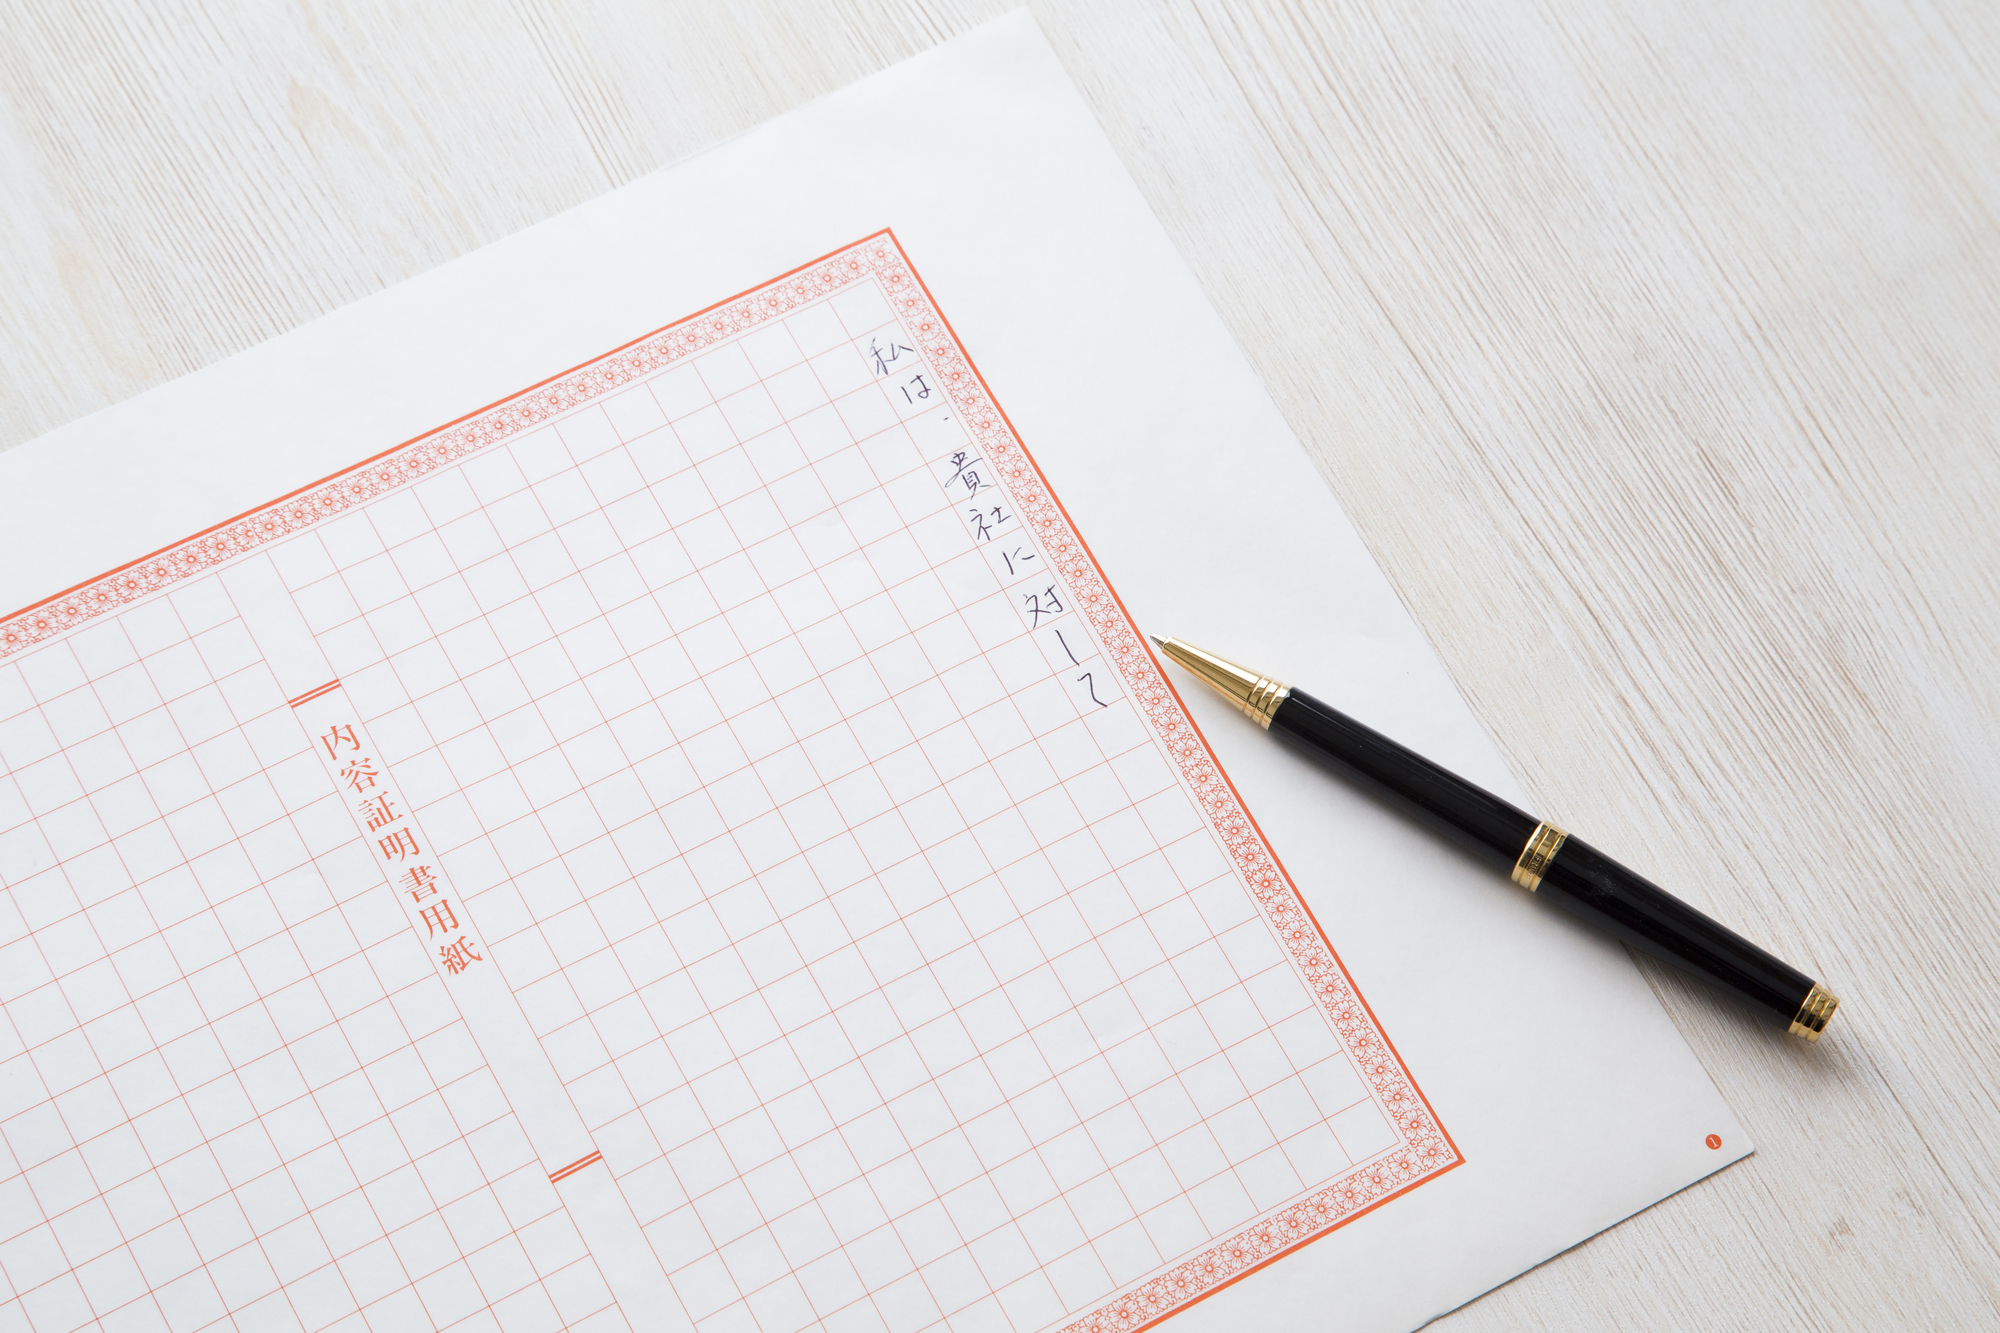 私は、貴社に対して
内容証明書用紙
1